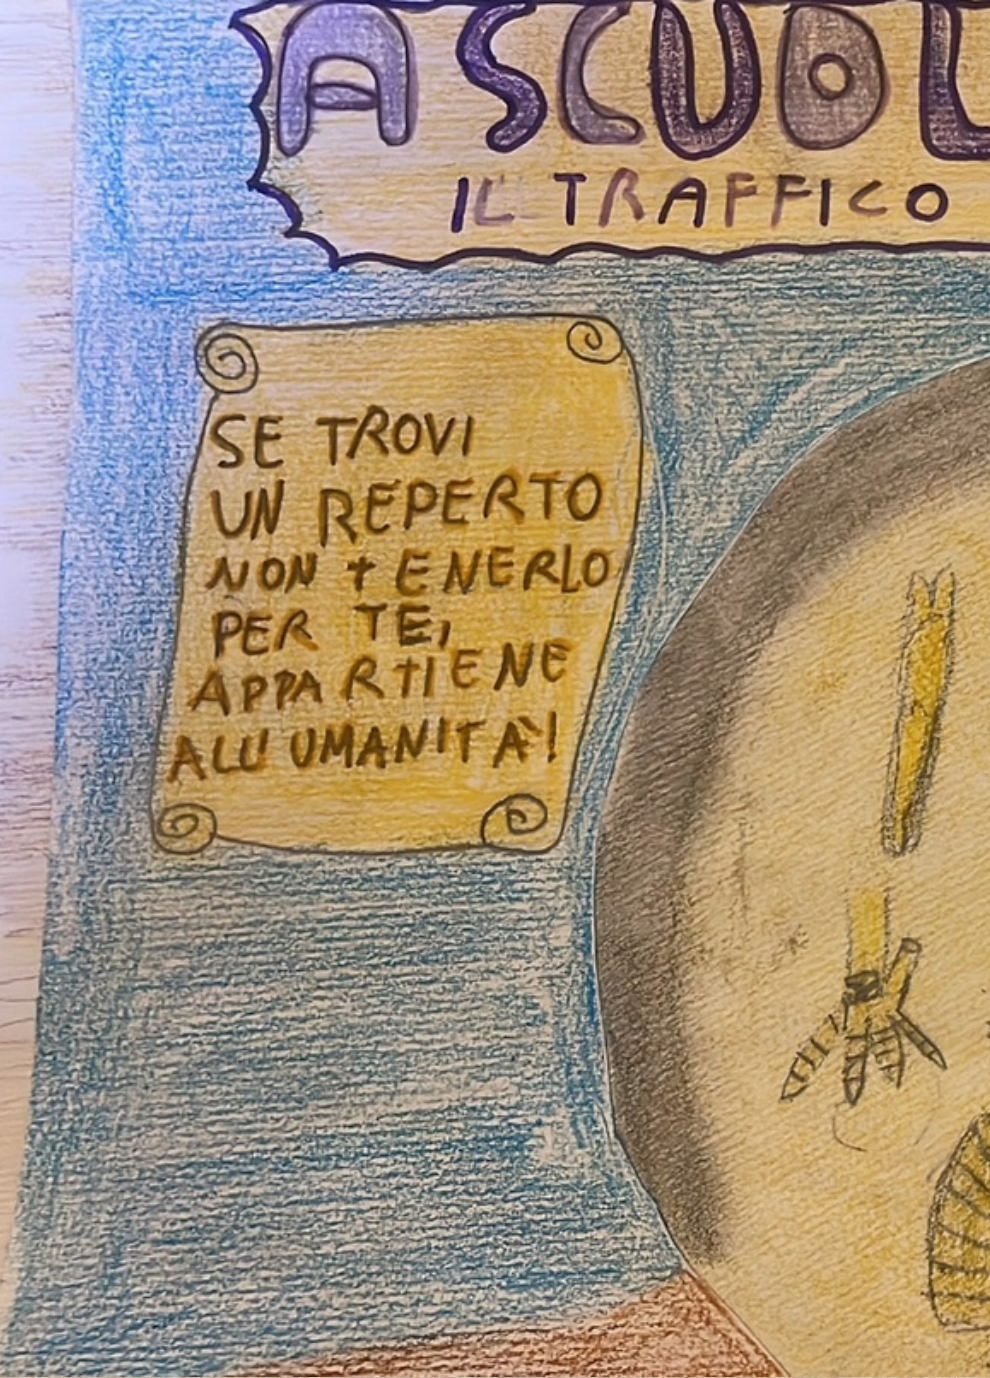 A SCUOL
IL TRAFFICO
SE TROVI
UN REPERTO
NON TENERLO
PER TE,
APPARTIENE
ALL'UMANITÀ!